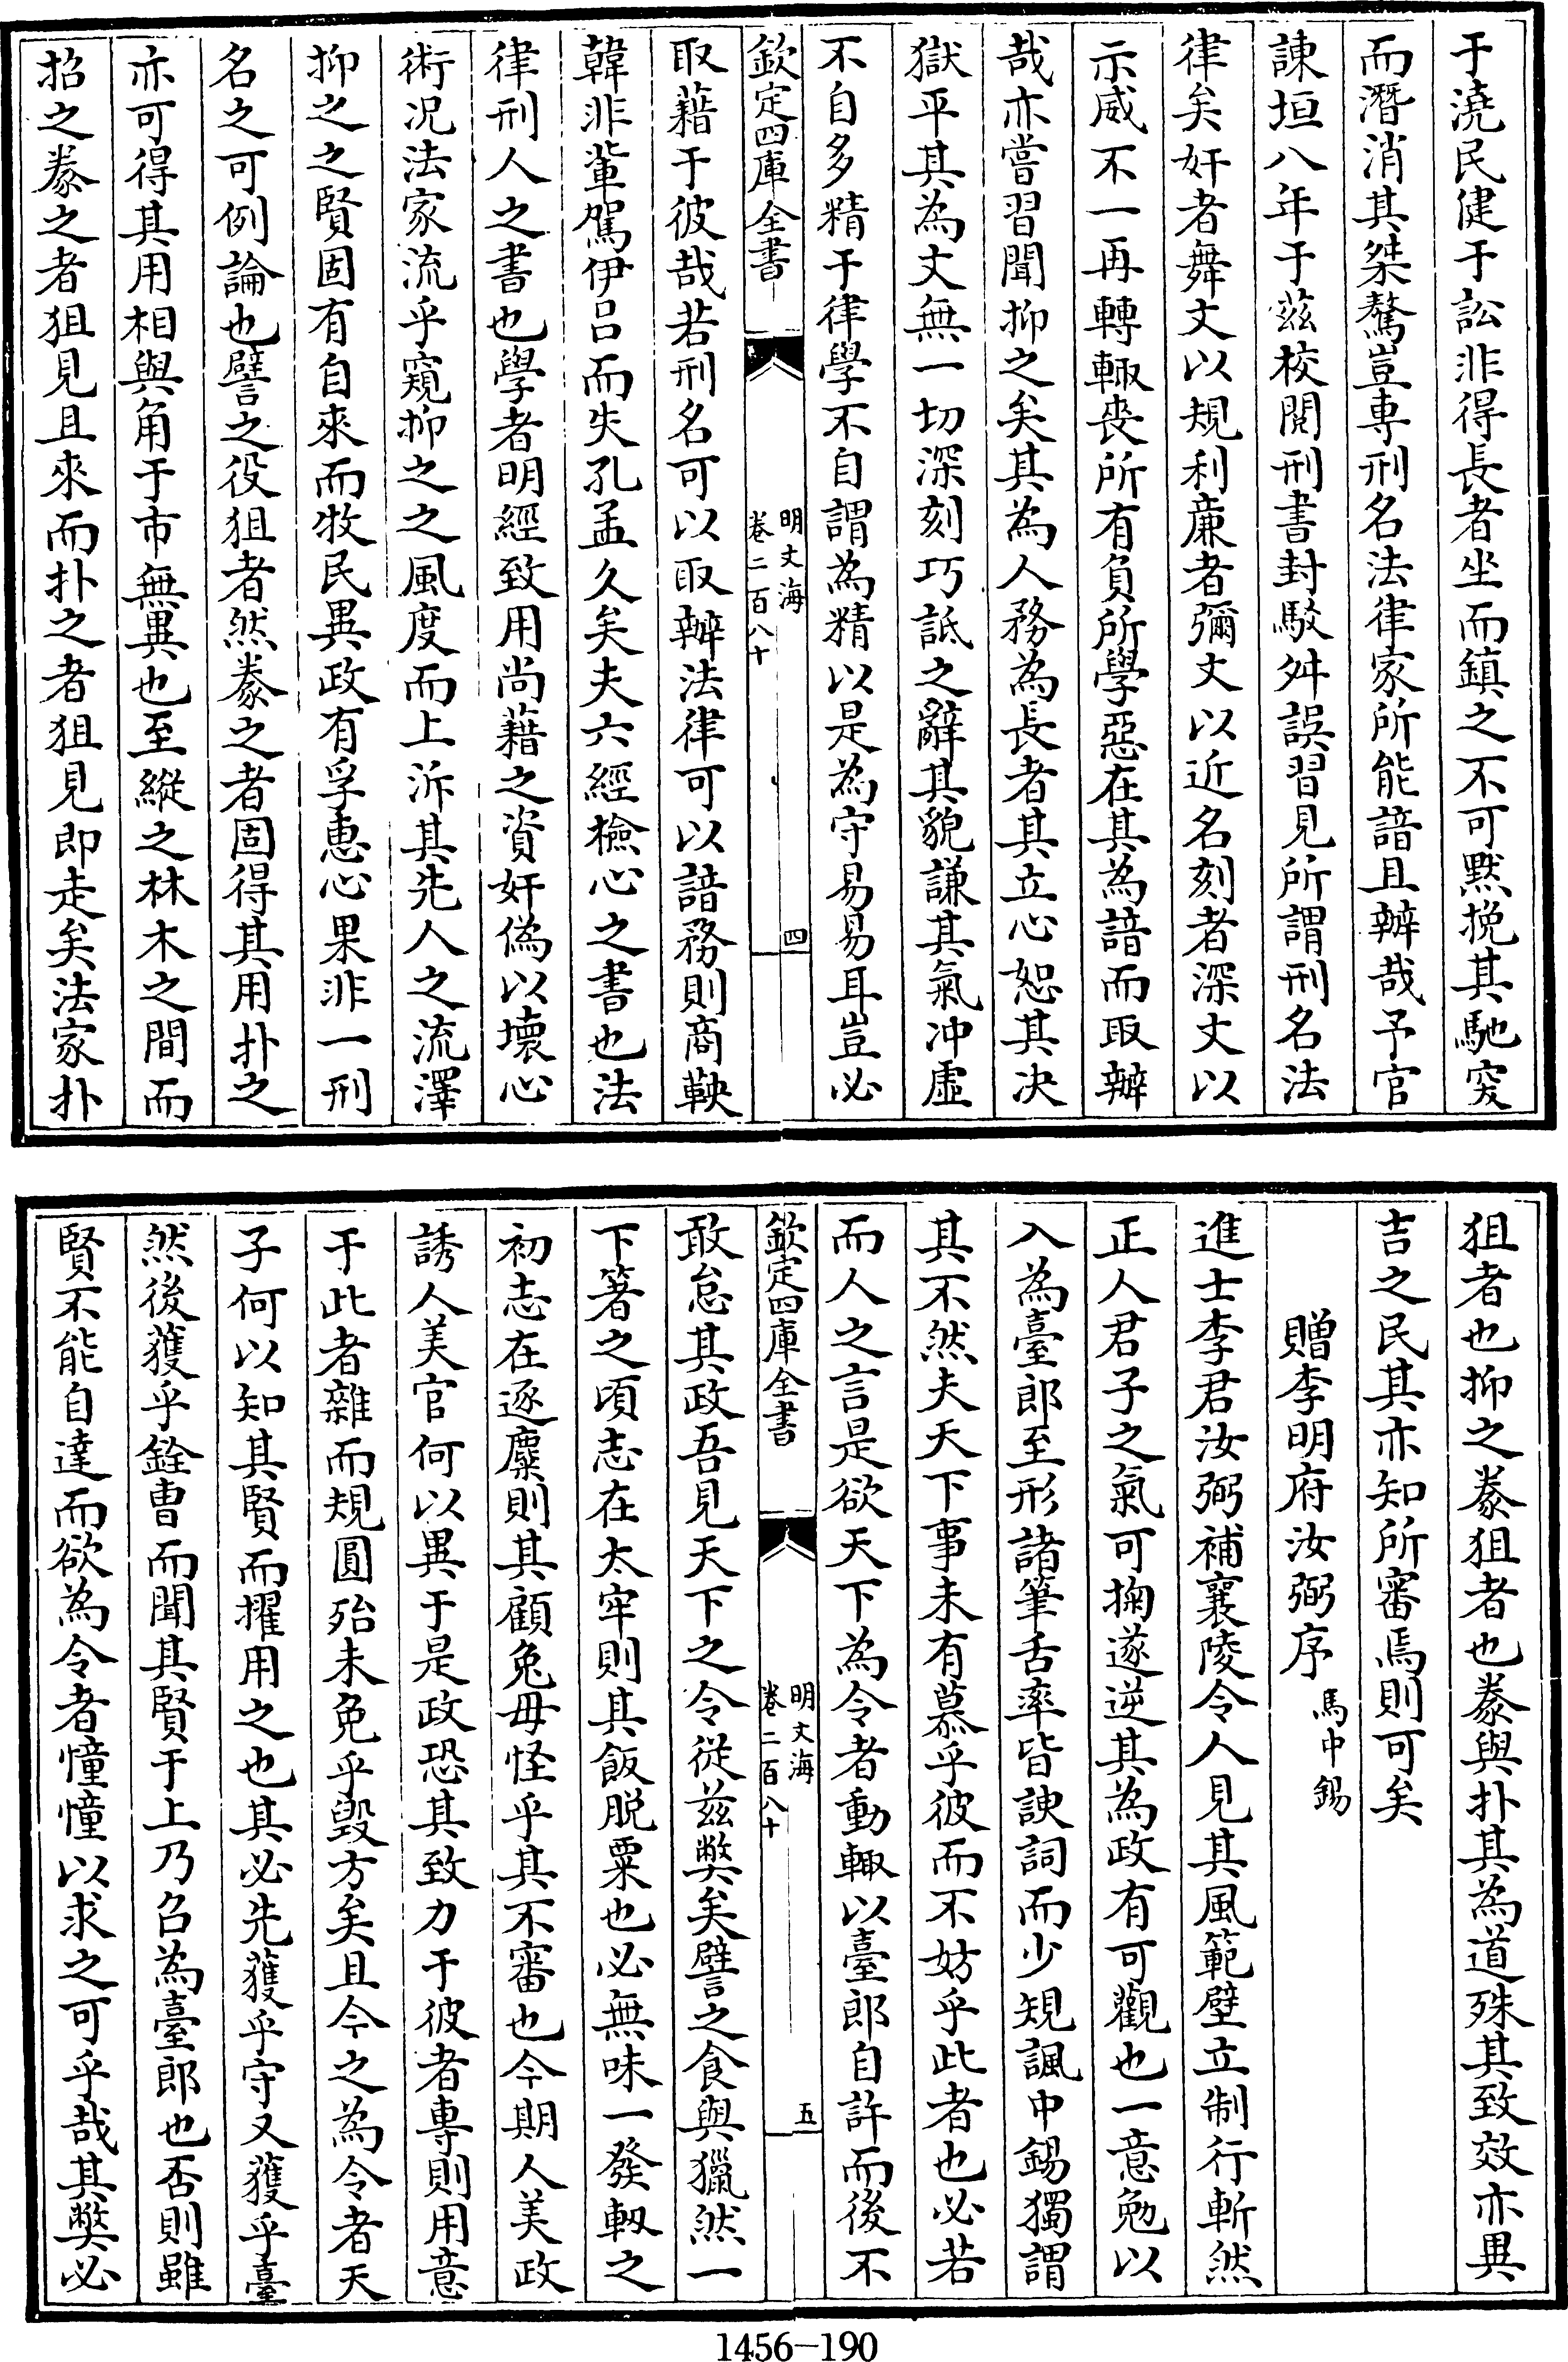 于澆民健于訟非得長者坐而鎮之不可黙挽其馳突
而潛消其桀驁豈専刑名法律家所能諳且辦哉予官
諌垣八年于兹校閲刑書封駁舛誤習見所謂刑名法
律矣奸者舞文以規利亷者彌文以近名刻者深文以
示威不一再轉輙丧所有負所學惡在其為諳而取辦
哉亦嘗習聞抑之矣其為人務為長者其立心恕其决
獄平其為文無一切深刻巧詆之辭其貌謙其氣冲虚
不自多精于律學不自謂為精以是為守易易耳豈必
欽定四庫全書
明文海
卷二百八十
四
取藉于彼哉若刑名可以取辦法律可以諳務則商鞅
韓非軰駕伊吕而失孔孟久矣夫六經檢心之書也法
律刑人之書也學者明經致用尚藉之資奸偽以壊心
術况法家流乎窺抑之之風度而上泝其先人之流澤
抑之之賢固有自來而牧民異政有孚惠心果非一刑
名之可例論也譬之役狙者然豢之者固得其用扑之
亦可得其用相與角于市無異也至縱之林木之間而
招之豢之者狙見且來而扑之者狙見即走矣法家扑
狙者也抑之豢狙者也豢與扑其為道殊其致效亦異
吉之民其亦知所審焉則可矣
贈李明府汝弼序 馬中錫
進士李君汝弼補襄陵令人見其風範壁立制行斬然
正人君子之氣可掬遂逆其為政有可觀也一意勉以
入為臺郎至形諸筆舌率皆諛詞而少規諷中錫獨謂
其不然夫天下事未有慕乎彼而不妨乎此者也必若
而人之言是欲天下為令者動輙以臺郎自許而後不
欽定四庫全書
明文海
卷二百八十
五
敢怠其政吾見天下之令從兹弊矣譬之食與獵然一
下箸之頃志在太牢則其飯脱粟也必無味一發軔之
初志在逐麋則其顧兔毋怪乎其不審也今期人美政
誘人美官何以異于是政恐其致力于彼者專則用意
于此者雜而規圓殆未免乎毁方矣且今之為令者天
子何以知其賢而擢用之也其必先獲乎守又獲乎臺
然後獲乎銓曹而聞其賢于上乃召為臺郎也否則雖
賢不能自達而欲為令者憧憧以求之可乎哉其弊必
1456-190